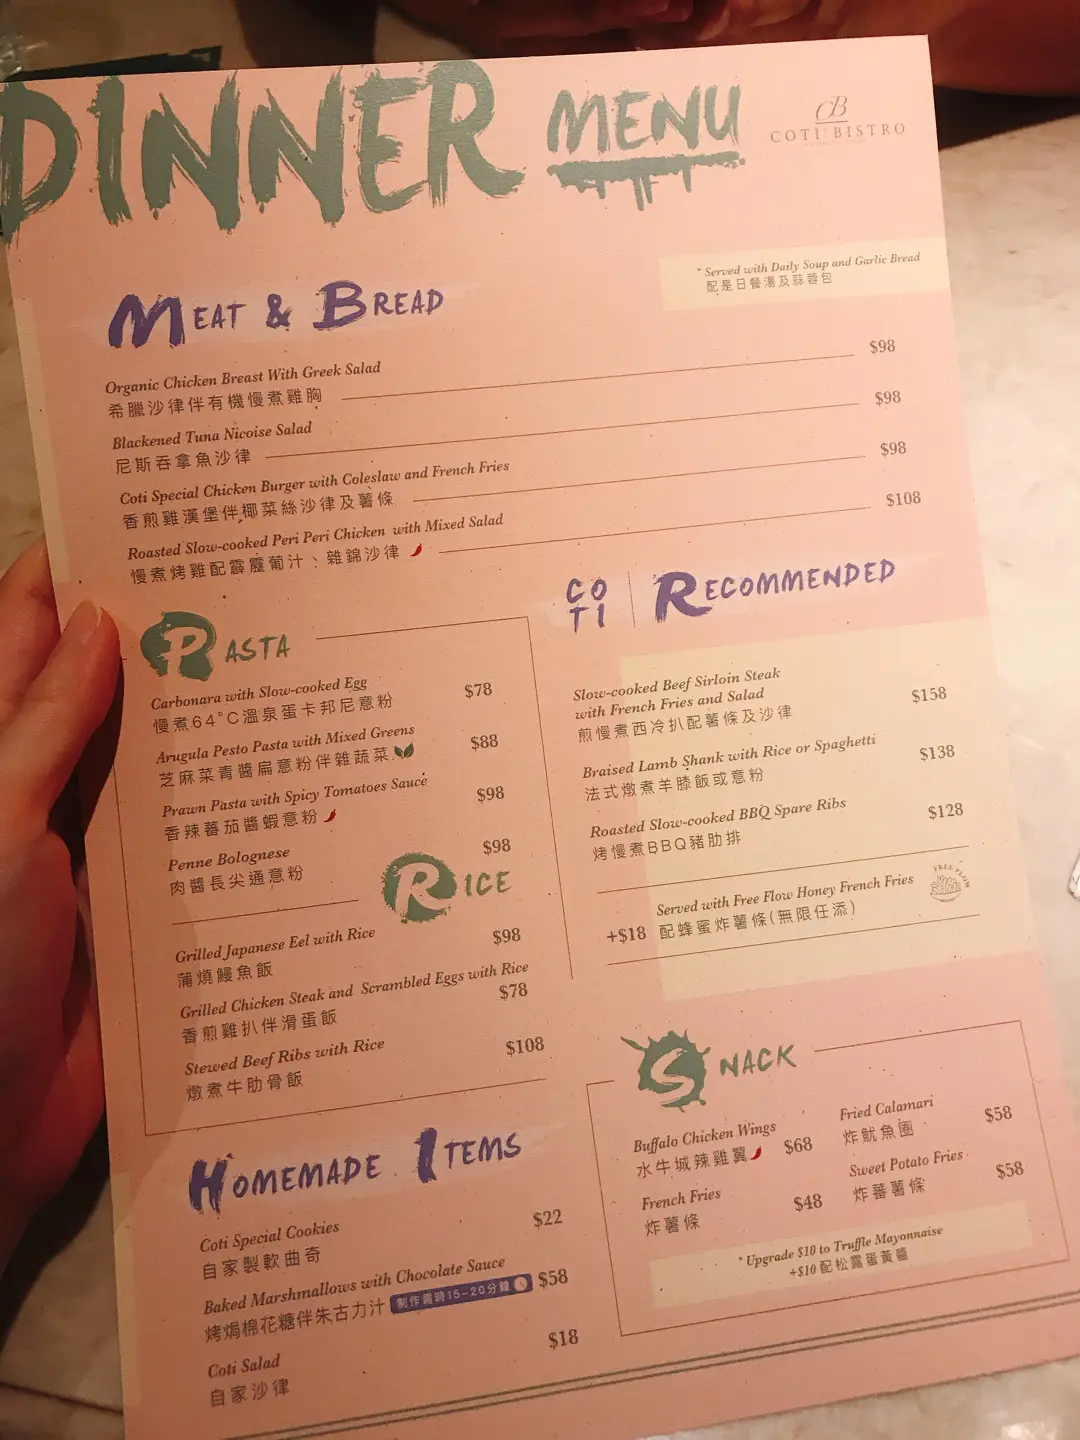 DINNER MENU
CB
COTI BISTRO
* Served with Daily Soup and Garlic Bread
配是日餐湯及蒜蓉包
MEAT & BREAD
Organic Chicken Breast With Greek Salad
希臘沙律伴有機慢煮雞胸
$98
Blackened Tuna Nicoise Salad
尼斯吞拿魚沙律
$98
Coti Special Chicken Burger with Coleslaw and French Fries
香煎雞漢堡伴椰菜絲沙律及薯條
$98
Roasted Slow-cooked Peri Peri Chicken with Mixed Salad
慢煮烤雞配霹靂葡汁、雜錦沙律
$108
PASTA
Carbonara with Slow-cooked Egg
慢煮64°C溫泉蛋卡邦尼意粉
$78
Arugula Pesto Pasta with Mixed Greens
芝麻菜青醬扁意粉伴雜蔬菜
$88
Prawn Pasta with Spicy Tomatoes Sauce
香辣蕃茄醬蝦意粉
$98
Penne Bolognese
肉醬長尖通意粉
$98
RICE
Grilled Japanese Eel with Rice
蒲燒鰻魚飯
$98
Grilled Chicken Steak and Scrambled Eggs with Rice
香煎雞扒伴滑蛋飯
$78
Stewed Beef Ribs with Rice
燉煮牛肋骨飯
$108
COTI
RECOMMENDED
Slow-cooked Beef Sirloin Steak
with French Fries and Salad
煎慢煮西冷扒配薯條及沙律
$158
Braised Lamb Shank with Rice or Spaghetti
法式燉煮羊膝飯或意粉
$138
Roasted Slow-cooked BBQ Spare Ribs
烤慢煮BBQ豬肋排
$128
+$18
Served with Free Flow Honey French Fries
配蜂蜜炸薯條(無限任添)
FREE FLOW
HOMEMADE ITEMS
Coti Special Cookies
自家製軟曲奇
$22
Baked Marshmallows with Chocolate Sauce
烤焗棉花糖伴朱古力汁 制作需時15-20分鐘
$58
Coti Salad
自家沙律
$18
SNACK
Buffalo Chicken Wings
水牛城辣雞翼
$68
Fried Calamari
炸魷魚圈
$58
French Fries
炸薯條
$48
Sweet Potato Fries
炸蕃薯條
$58
* Upgrade $10 to Truffle Mayonnaise
+$10 配松露蛋黃醬